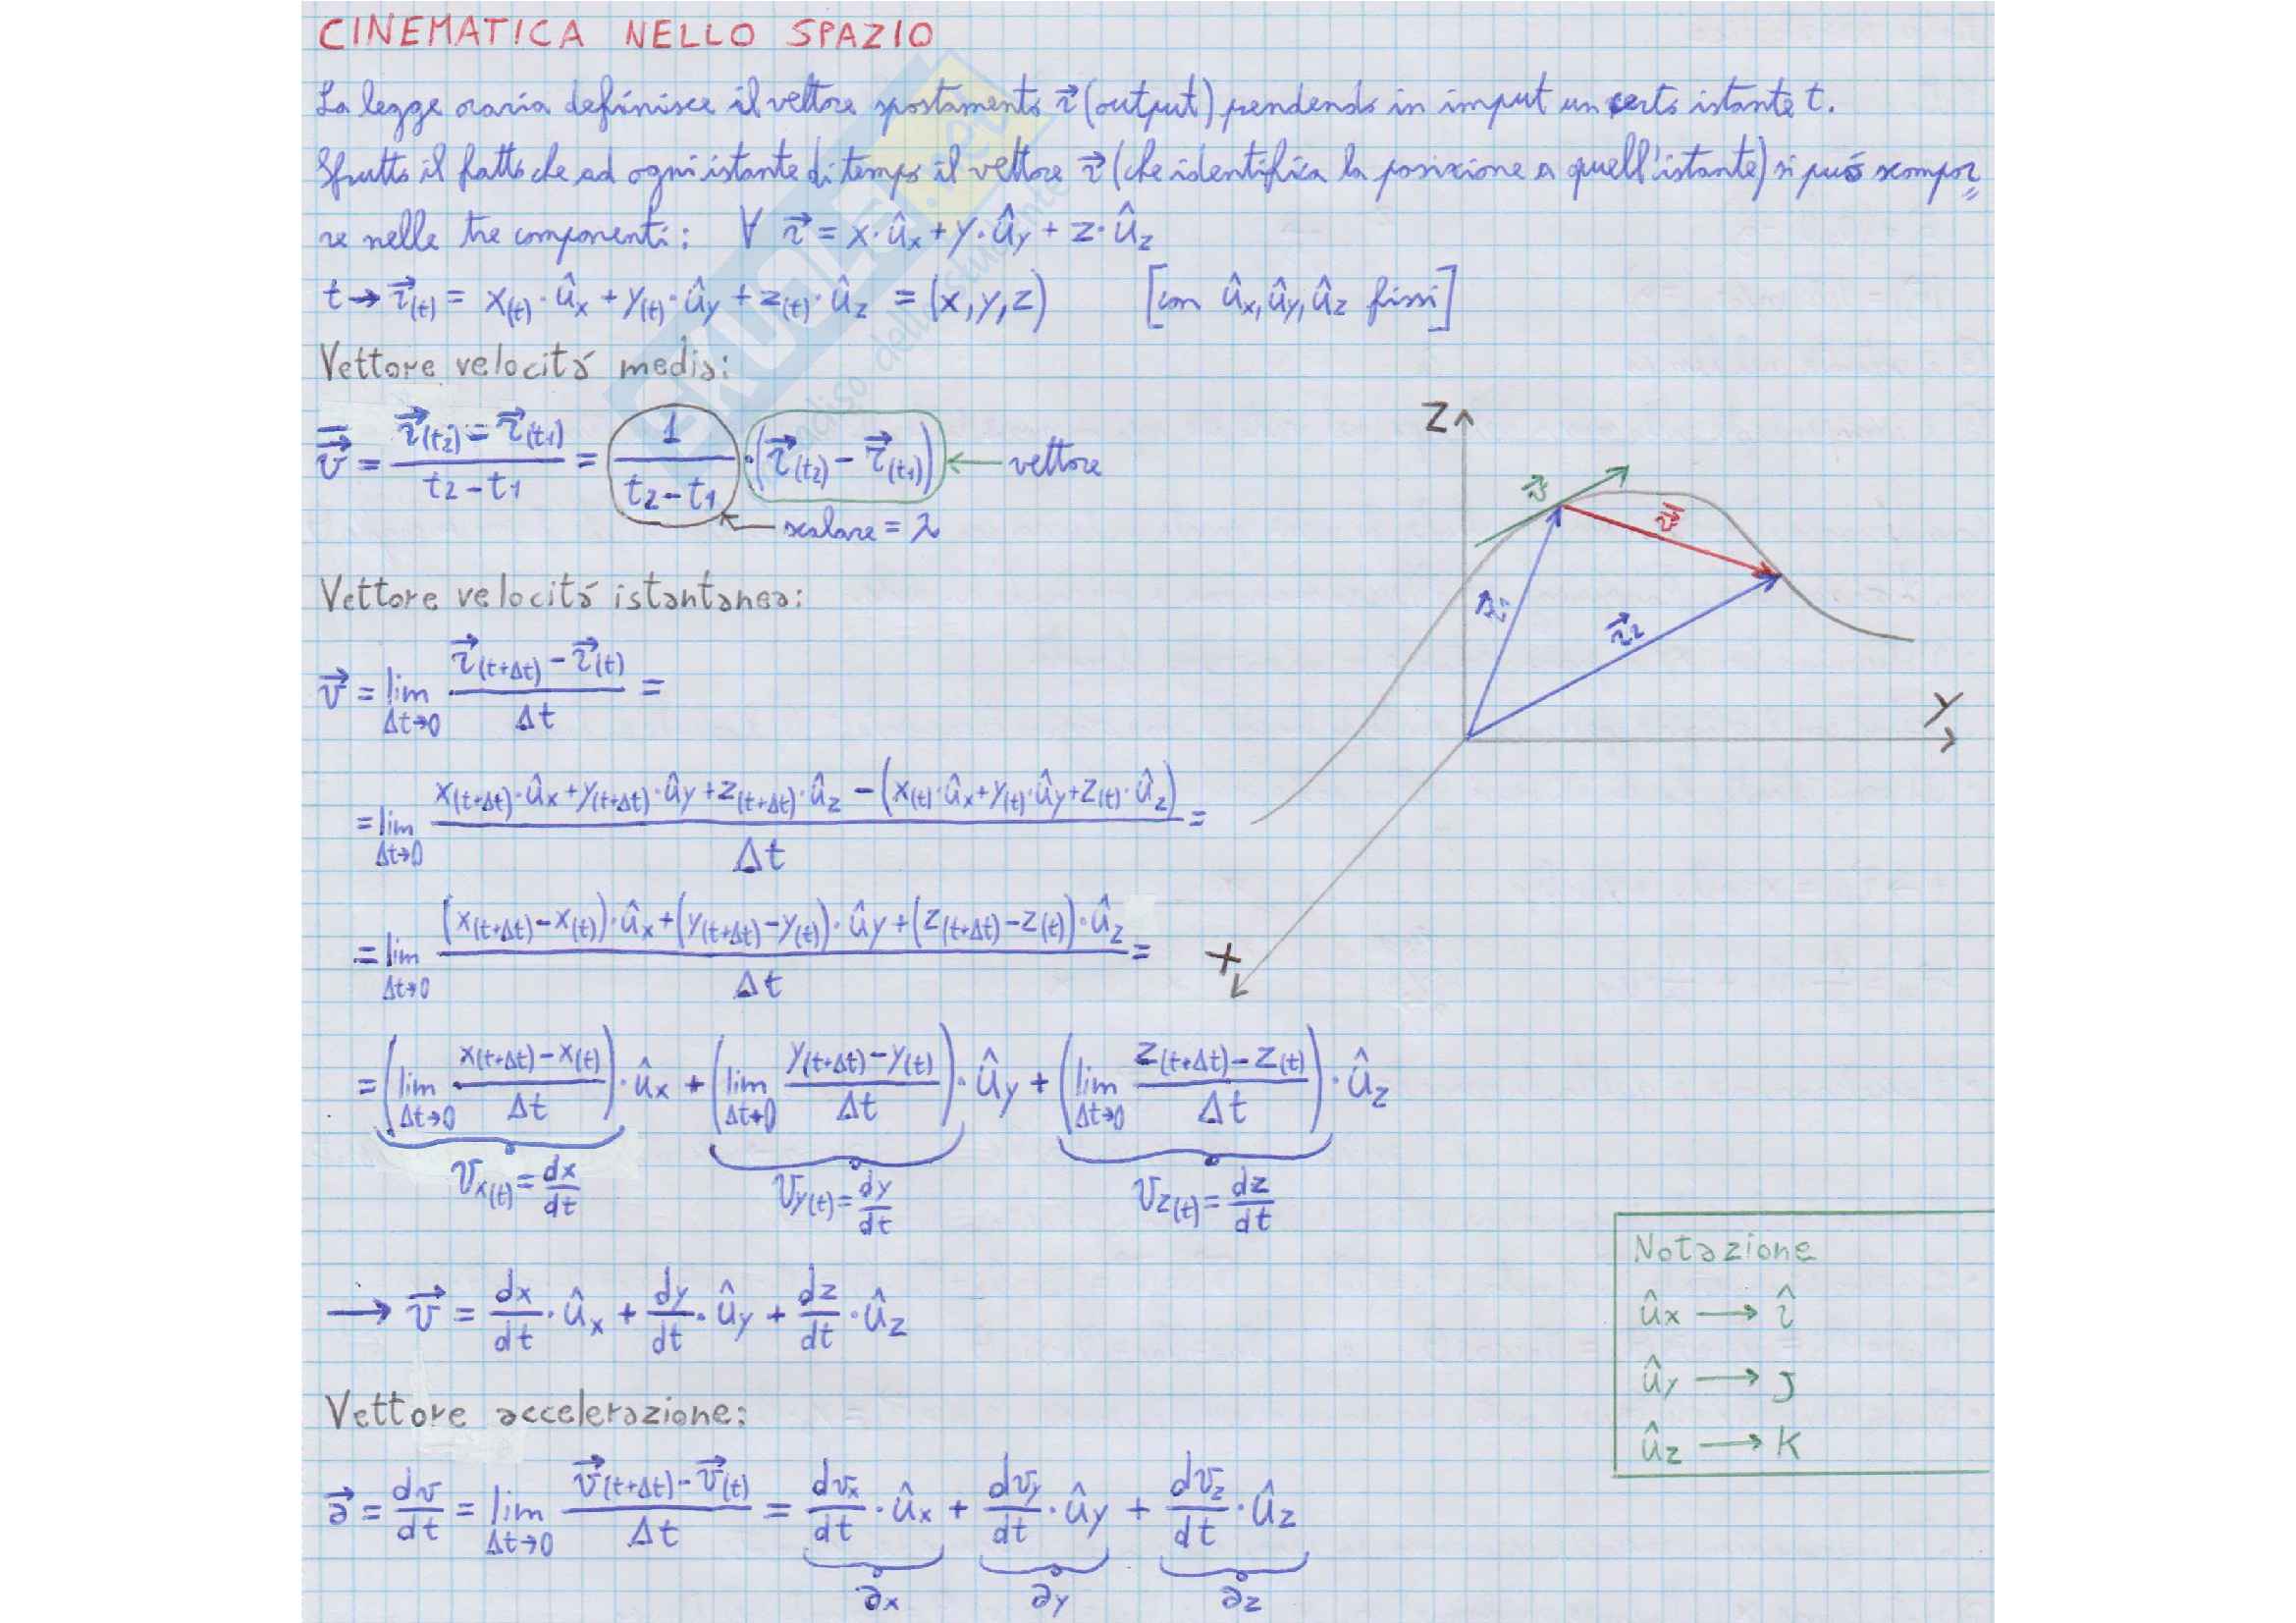 CINEMATICA NELLO SPAZIO
La legge oraria definisce il vettore spostamento r⃗ (output) pendendo in imput un certo istante t.
Sfrutto il fatto che ad ogni istante di tempo il vettore r⃗ (che identifica la posizione a quell'istante) si puó scompor=
re nelle tre componenti: ∀ r⃗ = x·ûx + y·ûy + z·ûz
t → r⃗(t) = x(t)·ûx + y(t)·ûy + z(t)·ûz = (x,y,z) [con ûx, ûy, ûz fissi]
Vettore velocitá media:
v̄⃗ = (r⃗(t2) = r⃗(t1))/(t2-t1) = 1/(t2-t1) · (r⃗(t2) - r⃗(t1)) ← vettore
← scalare = λ
Vettore velocitá istantanea:
v⃗ = lim Δt→0 (r⃗(t+Δt) - r⃗(t))/Δt =
= lim Δt→0 (x(t+Δt)·ûx + y(t+Δt)·ûy + z(t+Δt)·ûz - (x(t)·ûx + y(t)·ûy + z(t)·ûz))/Δt =
= lim Δt→0 ((x(t+Δt) - x(t))·ûx + (y(t+Δt) - y(t))·ûy + (z(t+Δt) - z(t))·ûz)/Δt =
= (lim Δt→0 (x(t+Δt) - x(t))/Δt)·ûx + (lim Δt→0 (y(t+Δt) - y(t))/Δt)·ûy + (lim Δt→0 (z(t+Δt) - z(t))/Δt)·ûz
vx(t) = dx/dt vy(t) = dy/dt vz(t) = dz/dt
→ v⃗ = dx/dt·ûx + dy/dt·ûy + dz/dt·ûz
Vettore accelerazione:
a⃗ = dv/dt = lim Δt→0 (v⃗(t+Δt) - v⃗(t))/Δt = dvx/dt·ûx + dvy/dt·ûy + dvz/dt·ûz
ax ay az
Z
v⃗
v̄⃗
r⃗1
r⃗2
Y
X
Notazione
ûx → î
ûy → J
ûz → K
SKUOLA